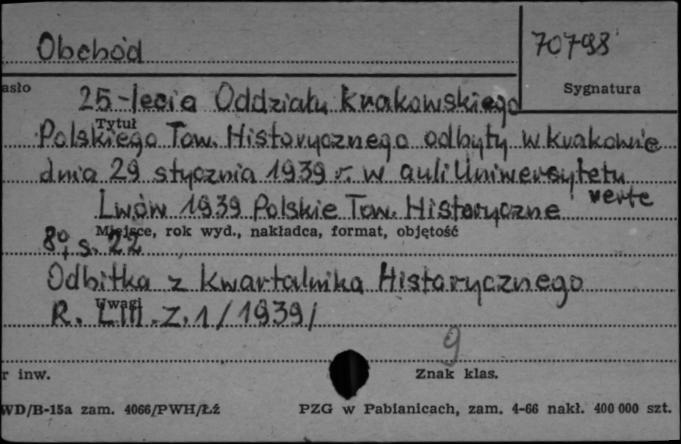 Obchód
70798
asło
Sygnatura
25-lecia Oddziału Krakowskiego
Tytuł
Polskiego Tow. Historycznego odbyty w Krakowie
dnia 29 stycznia 1939 r. w auli Uniwersytetu
verte
Lwów 1939 Polskie Tow. Historyczne
Miejsce, rok wyd., nakładca, format, objętość
8°, s. 22
Odbitka z Kwartalnika Historycznego
Uwagi
R. LIII. Z. 1 /1939/
9
r inw.
Znak klas.
WD/B-15a zam. 4066/PWH/Łź
PZG w Pabianicach, zam. 4-66 nakł. 400 000 szt.